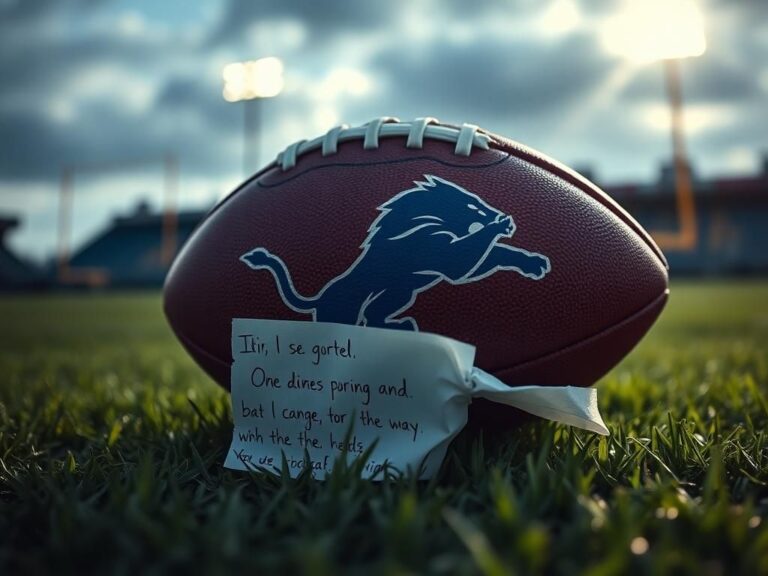 I se gortel.
One dines poring and.
bat I cange, tor the way.
whh the the. heds